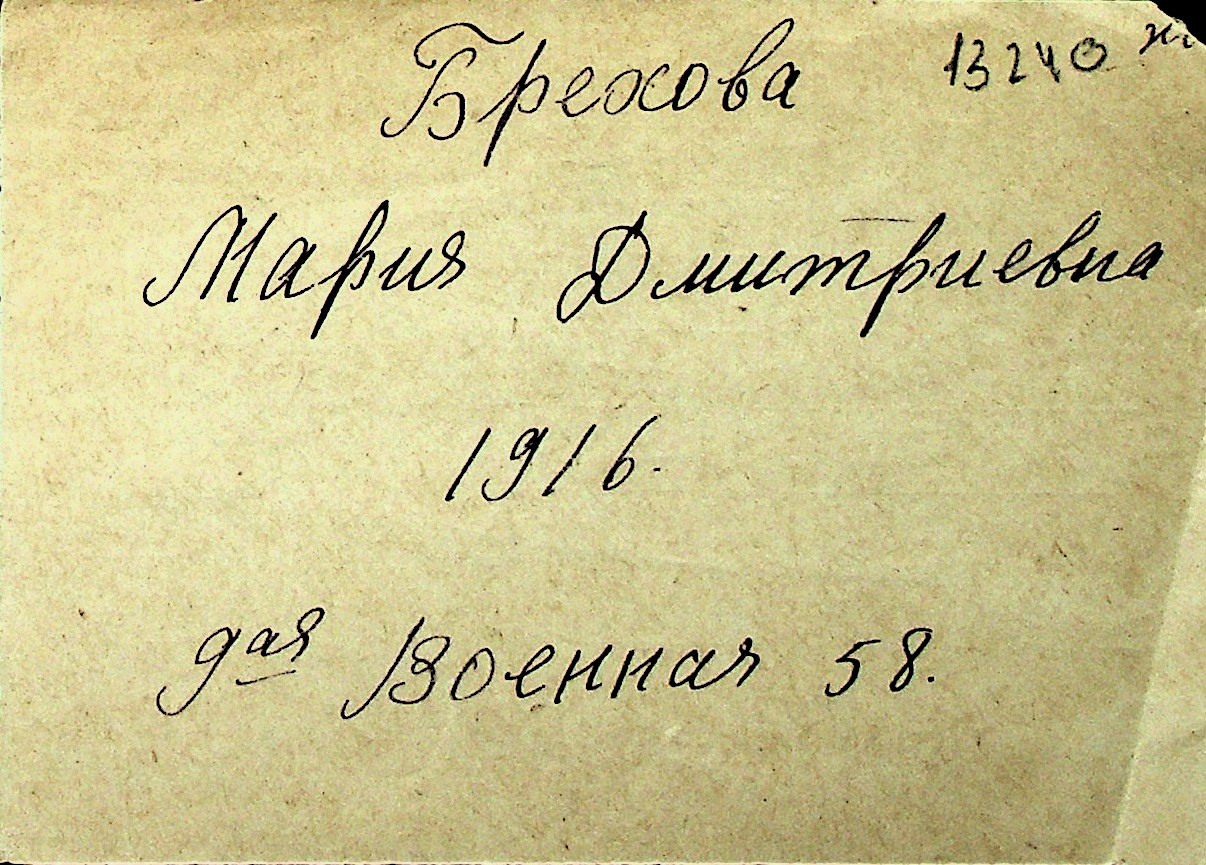 13240
Брехова
Мария Дмитриевна
1916.
9ая Военная 58.